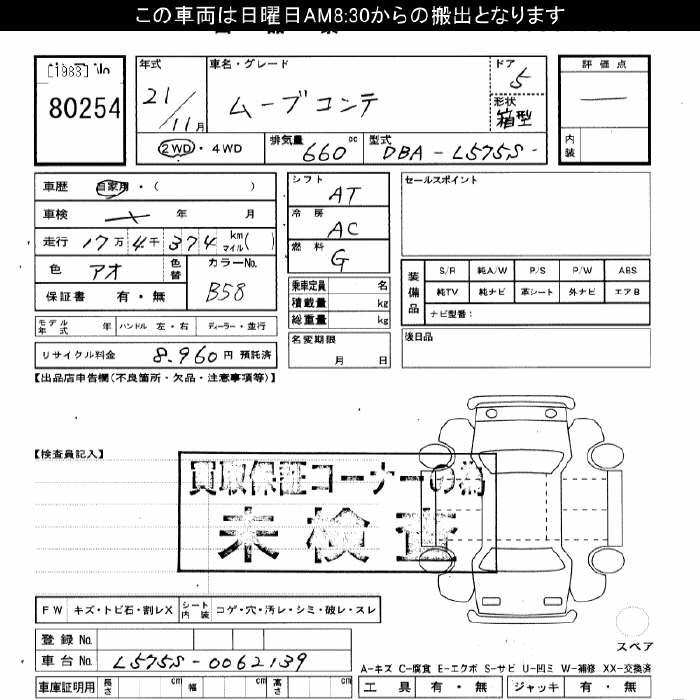 この車両は日曜日AM8:30からの搬出となります
[1983] No
80254
年式
21/11月
2WD・4WD
車名・グレード
ムーブコンテ
ドア
5
形状
箱型
排気量
660 cc
型式
DBA-L575S-
評価点
内装
車歴 自家用・( )
車検 年 月
走行 17万 4千 374 km マイル( )
色 アオ 色替
カラーNo.
B58
保証書 有・無
モデル年式 年 ハンドル 左・右 ディーラー・並行
リサイクル料金 8,960円 預託済
シフト AT
冷房 AC
燃料 G
乗車定員 名
積載量 kg
総重量 kg
名変期限
月 日
セールスポイント
装備品
S/R 純A/W P/S P/W ABS
純TV 純ナビ 革シート 外ナビ エアB
ナビ型番:
後日品
【出品店申告欄(不良箇所・欠品・注意事項等)】
【検査員記入】
買取保証コーナーの為
未検査
FW キズ・トビ石・割レX シート内装 コゲ・穴・汚レ・シミ・破レ・スレ
登録No.
車台No. L575S-0062139
車庫証明用 長さ cm 幅 cm 高さ cm
スペア
A-キズ C-腐食 E-エクボ S-サビ U-凹ミ W-補修 XX-交換済
工具 有・無 ジャッキ 有・無